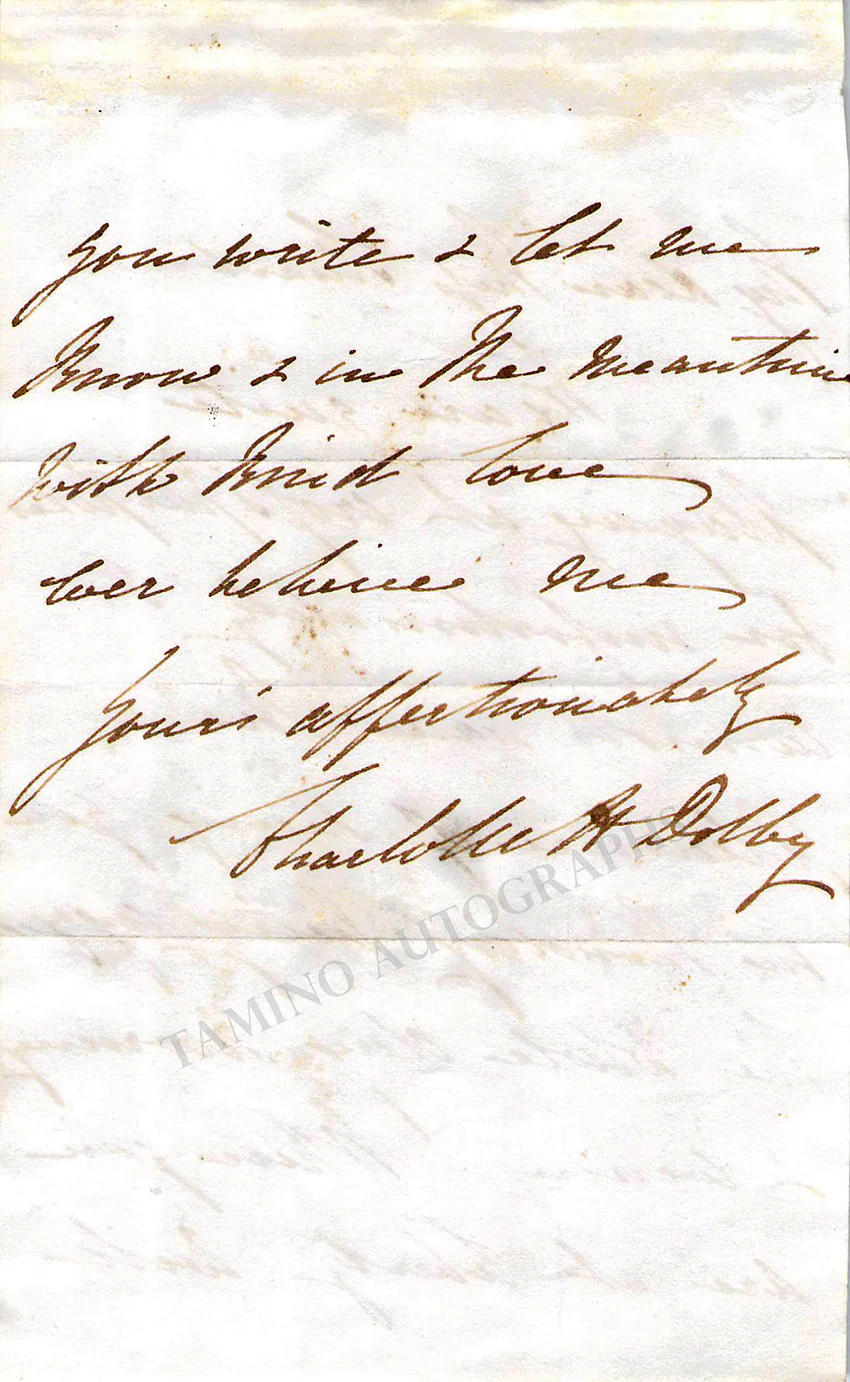 you write & let me
know & in the meantime
with kind love
ever believe me
Yours affectionately
Charlotte H Dolby
TAMINO AUTOGRAPHS